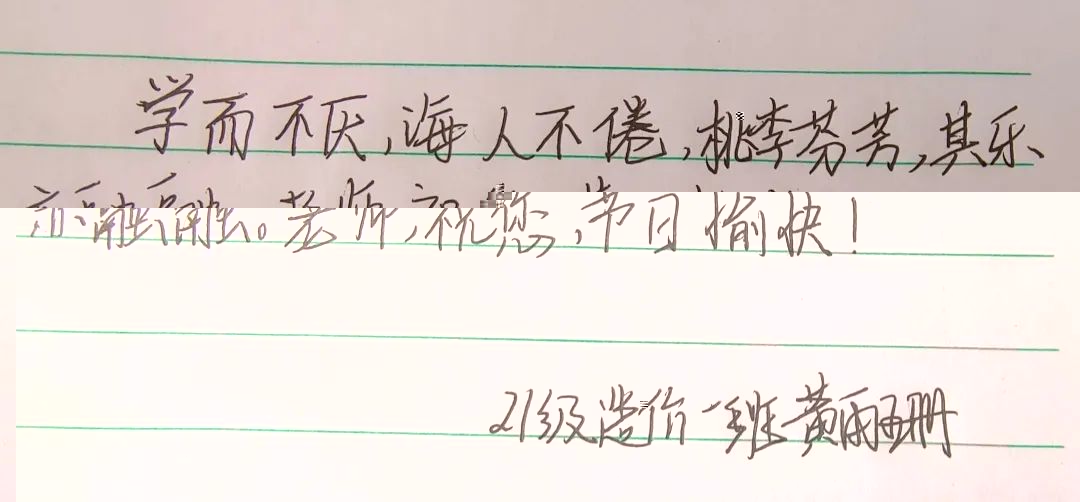 学而不厌,海人不倦,桃李芬芳,其乐
亦融融。老师,祝您,节日愉快!
21级造价一班黄雨珊